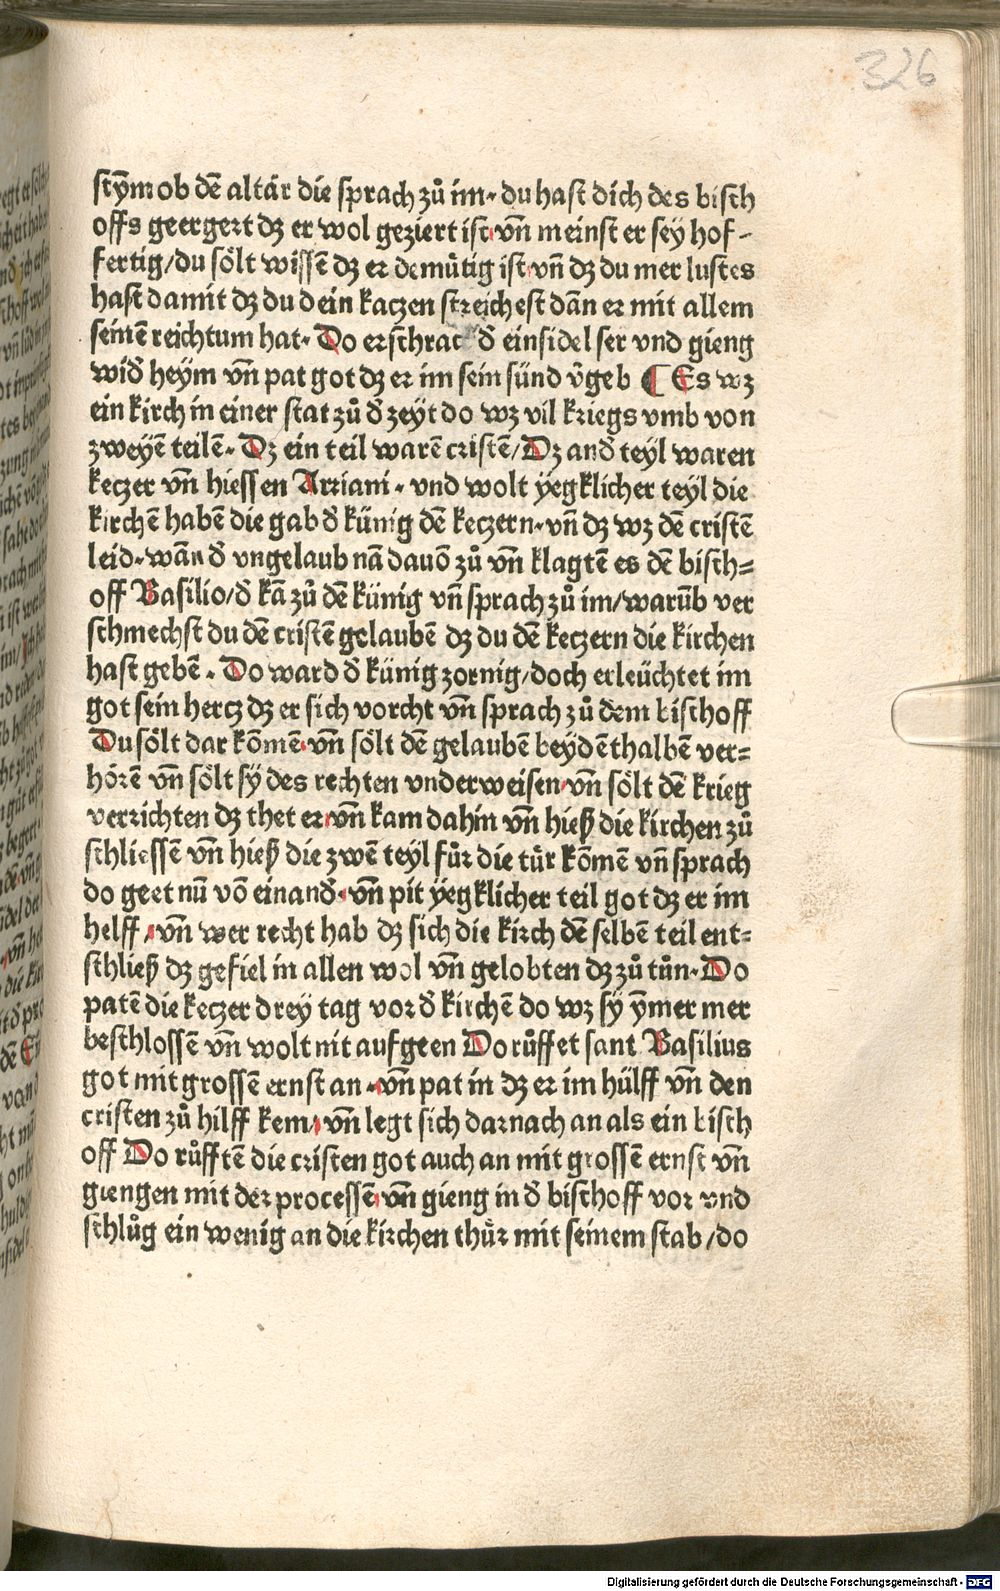 326
stym̄ ob dē altär die sprach zů im · du hast dich des bisch
offs geergert dz er wol geziert ist · vn̄ meinst er sey hof-
fertig / du sölt wissē dz er demůtig ist · vn̄ dz du mer lustes
hast damit dz du dein kaczen streichest dan̄ er mit allem
seinē reichtum hat · Do erschrack d̄ einsidel ser vnd gieng
wid̄ heym vn̄ pat got dz er im sein sünd v̄geb ¶ Es wz
ein kirch in einer stat zů d̄ zeyt do wz vil kriegs vmb von
zweyē teilē · Dz ein teil warē cristē / Dz and̄ teyl waren
keczer vn̄ hiessen Arriani · vnd wolt yegklicher teyl die
kirchē habē die gab d̄ künig dē keczern · vn̄ dz wz dē cristē
leid · wan̄ d̄ vngelaub nā davō zů vn̄ klagtē es dē bisch=
off Basilio / d̄ kā zů dē künig vn̄ sprach zů im / warūb ver
schmechst du dē cristē gelaubē dz du dē keczern die kirchen
hast gebē · Do ward d̄ künig zornig / doch erleüchtet im
got sein hercz dz er sich vorcht vn̄ sprach zů dem bischoff
Du sölt dar kōmē · vn̄ sölt dē gelaubē beydēthalbē ver=
hörē vn̄ sölt sy des rechten vnderweisen · vn̄ sölt dē krieg
verrichten dz thet er · vn̄ kam dahin vn̄ hieß die kirchen zů
schliessē vn̄ hieß die zwē teyl für die tür kōmē vn̄ sprach
do geet nū vō einand̄ · vn̄ pit yegklicher teil got dz er im
helff / vn̄ wer recht hab dz sich die kirch dē selbē teil ent=
schließ dz gefiel in allen wol vn̄ gelobten dz zů tůn · Do
patē die keczer drey tag vor d̄ kirchē do wz sy ym̄er mer
beschlossē vn̄ wolt nit aufgeen Do růffet sant Basilius
got mit grossē ernst an · vn̄ pat in dz er im hülff vn̄ den
cristen zů hilff kem / vn̄ legt sich darnach an als ein bisch
off Do růfftē die cristen got auch an mit grossē ernst vn̄
giengen mit der processē · vn̄ gieng in d̄ bischoff vor vnd
schlůg ein wenig an die kirchen thür mit seinem stab / do
Digitalisierung gefördert durch die Deutsche Forschungsgemeinschaft - DFG